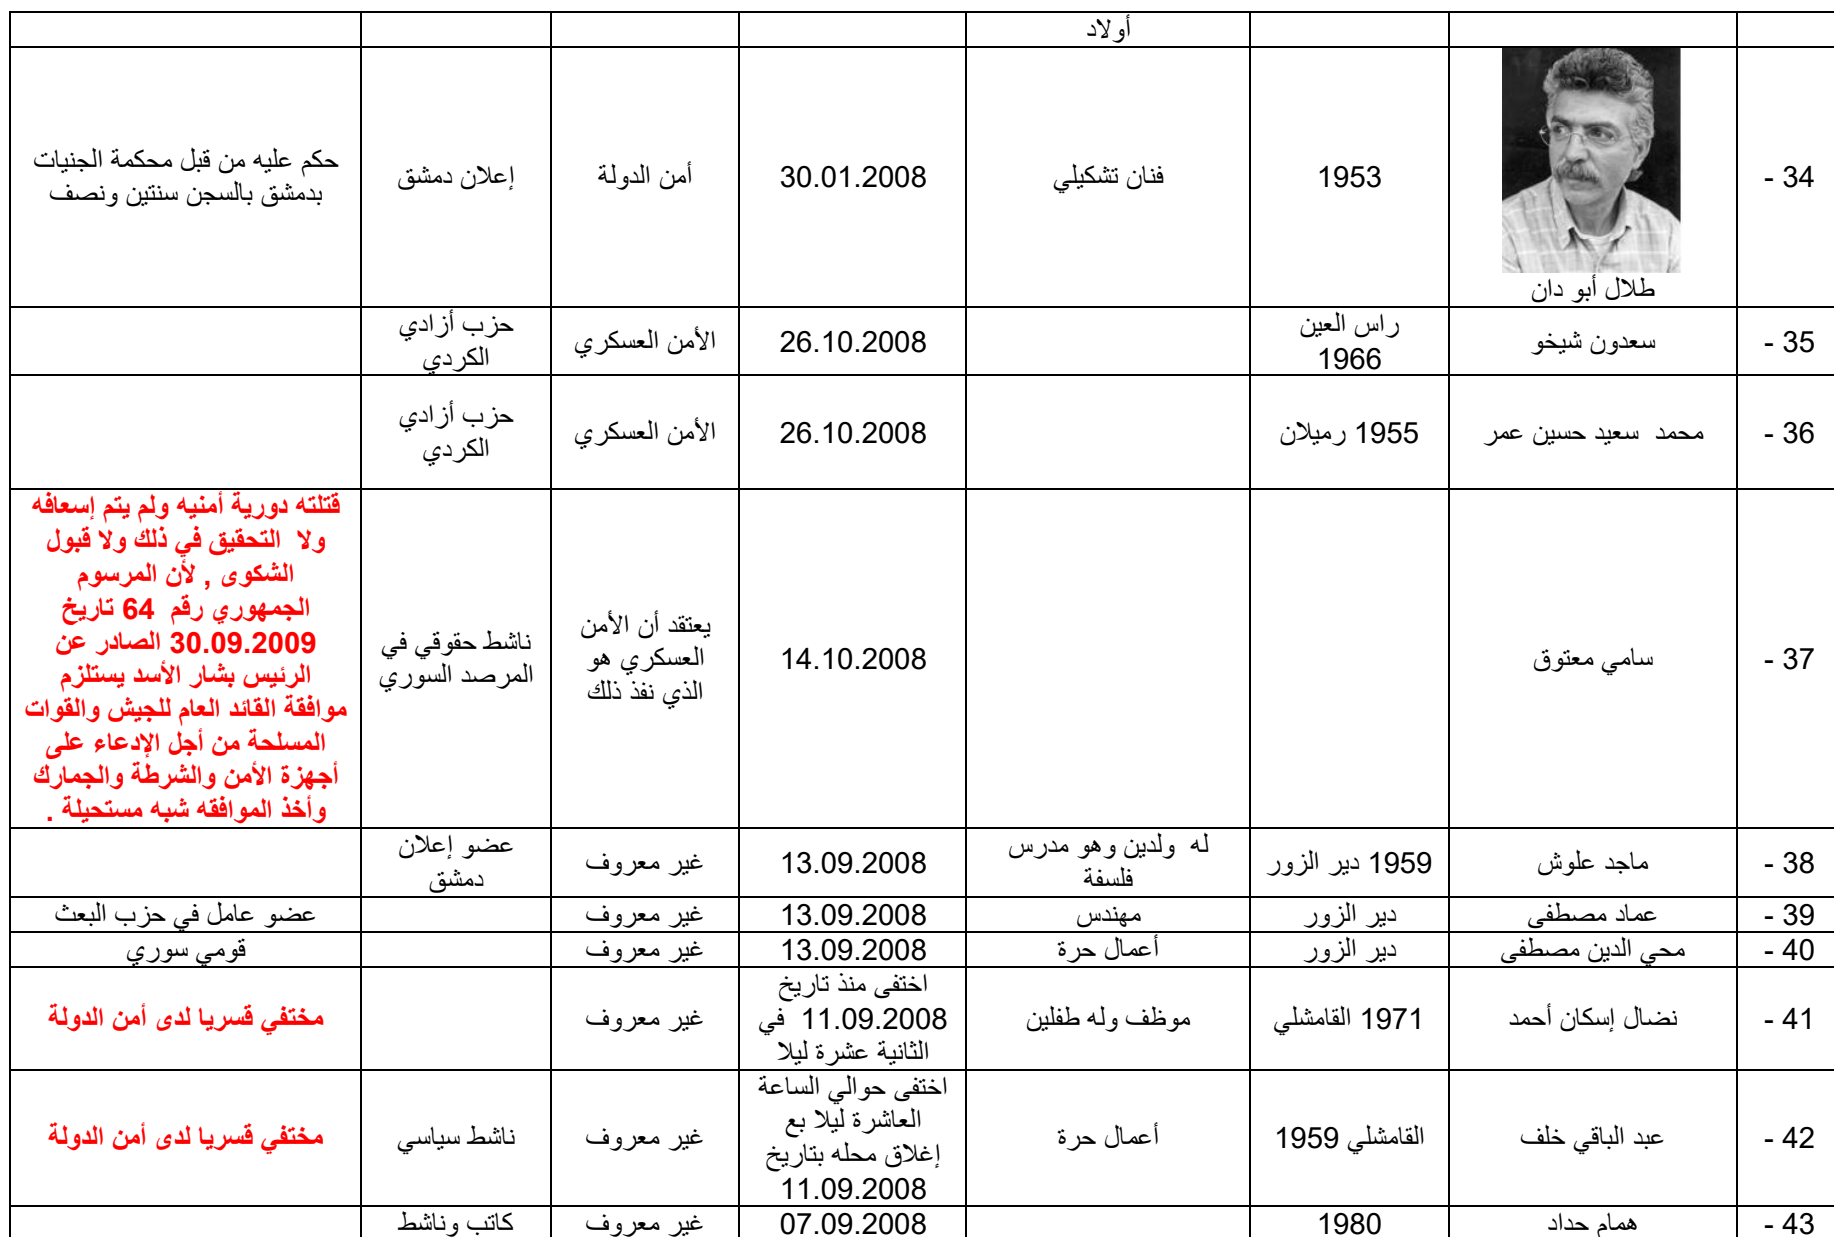 أولاد
34 -
طلال أبو دان
1953
فنان تشكيلي
30.01.2008
أمن الدولة
إعلان دمشق
حكم عليه من قبل محكمة الجنيات
بدمشق بالسجن سنتين ونصف
35 -
سعدون شيخو
راس العين
1966
26.10.2008
الأمن العسكري
حزب أزادي
الكردي
36 -
محمد سعيد حسين عمر
1955 رميلان
26.10.2008
الأمن العسكري
حزب أزادي
الكردي
37 -
سامي معتوق
14.10.2008
يعتقد أن الأمن
العسكري هو
الذي نفذ ذلك
ناشط حقوقي في
المرصد السوري
قتلته دورية أمنيه ولم يتم إسعافه
ولا التحقيق في ذلك ولا قبول
الشكوى , لأن المرسوم
الجمهوري رقم 64 تاريخ
30.09.2009 الصادر عن
الرئيس بشار الأسد يستلزم
موافقة القائد العام للجيش والقوات
المسلحة من أجل الإدعاء على
أجهزة الأمن والشرطة والجمارك
وأخذ الموافقه شبه مستحيلة .
38 -
ماجد علوش
1959 دير الزور
له ولدين وهو مدرس
فلسفة
13.09.2008
غير معروف
عضو إعلان
دمشق
39 -
عماد مصطفى
دير الزور
مهندس
13.09.2008
غير معروف
عضو عامل في حزب البعث
40 -
محي الدين مصطفى
دير الزور
أعمال حرة
13.09.2008
غير معروف
قومي سوري
41 -
نضال إسكان أحمد
1971 القامشلي
موظف وله طفلين
اختفى منذ تاريخ
11.09.2008 في
الثانية عشرة ليلا
غير معروف
مختفي قسريا لدى أمن الدولة
42 -
عبد الباقي خلف
القامشلي 1959
أعمال حرة
اختفى حوالي الساعة
العاشرة ليلا بع
إغلاق محله بتاريخ
11.09.2008
غير معروف
ناشط سياسي
مختفي قسريا لدى أمن الدولة
43 -
همام حداد
1980
07.09.2008
غير معروف
كاتب وناشط